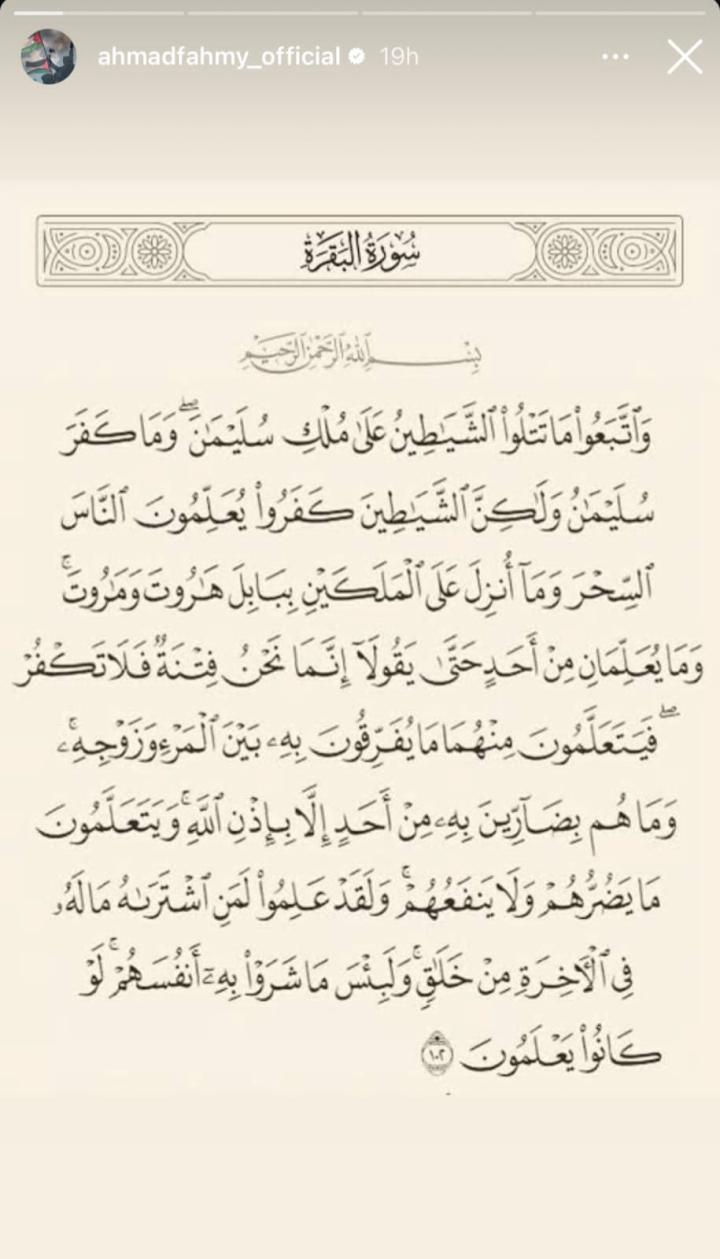 ahmadfahmy_official 19h
سُورَةُ البَقَرَةِ
بِسْمِ ٱللَّهِ ٱلرَّحْمَٰنِ ٱلرَّحِيمِ
وَٱتَّبَعُوا۟ مَا تَتْلُوا۟ ٱلشَّيَٰطِينُ عَلَىٰ مُلْكِ سُلَيْمَٰنَ ۖ وَمَا كَفَرَ
سُلَيْمَٰنُ وَلَٰكِنَّ ٱلشَّيَٰطِينَ كَفَرُوا۟ يُعَلِّمُونَ ٱلنَّاسَ
ٱلسِّحْرَ وَمَآ أُنزِلَ عَلَى ٱلْمَلَكَيْنِ بِبَابِلَ هَٰرُوتَ وَمَٰرُوتَ ۚ
وَمَا يُعَلِّمَانِ مِنْ أَحَدٍ حَتَّىٰ يَقُولَآ إِنَّمَا نَحْنُ فِتْنَةٌ فَلَا تَكْفُرْ
ۖ فَيَتَعَلَّمُونَ مِنْهُمَا مَا يُفَرِّقُونَ بِهِۦ بَيْنَ ٱلْمَرْءِ وَزَوْجِهِۦ ۚ
وَمَا هُم بِضَآرِّينَ بِهِۦ مِنْ أَحَدٍ إِلَّا بِإِذْنِ ٱللَّهِ ۚ وَيَتَعَلَّمُونَ
مَا يَضُرُّهُمْ وَلَا يَنفَعُهُمْ ۚ وَلَقَدْ عَلِمُوا۟ لَمَنِ ٱشْتَرَىٰهُ مَا لَهُۥ
فِى ٱلْءَاخِرَةِ مِنْ خَلَٰقٍ ۚ وَلَبِئْسَ مَا شَرَوْا۟ بِهِۦٓ أَنفُسَهُمْ ۚ لَوْ
كَانُوا۟ يَعْلَمُونَ ١٠٢